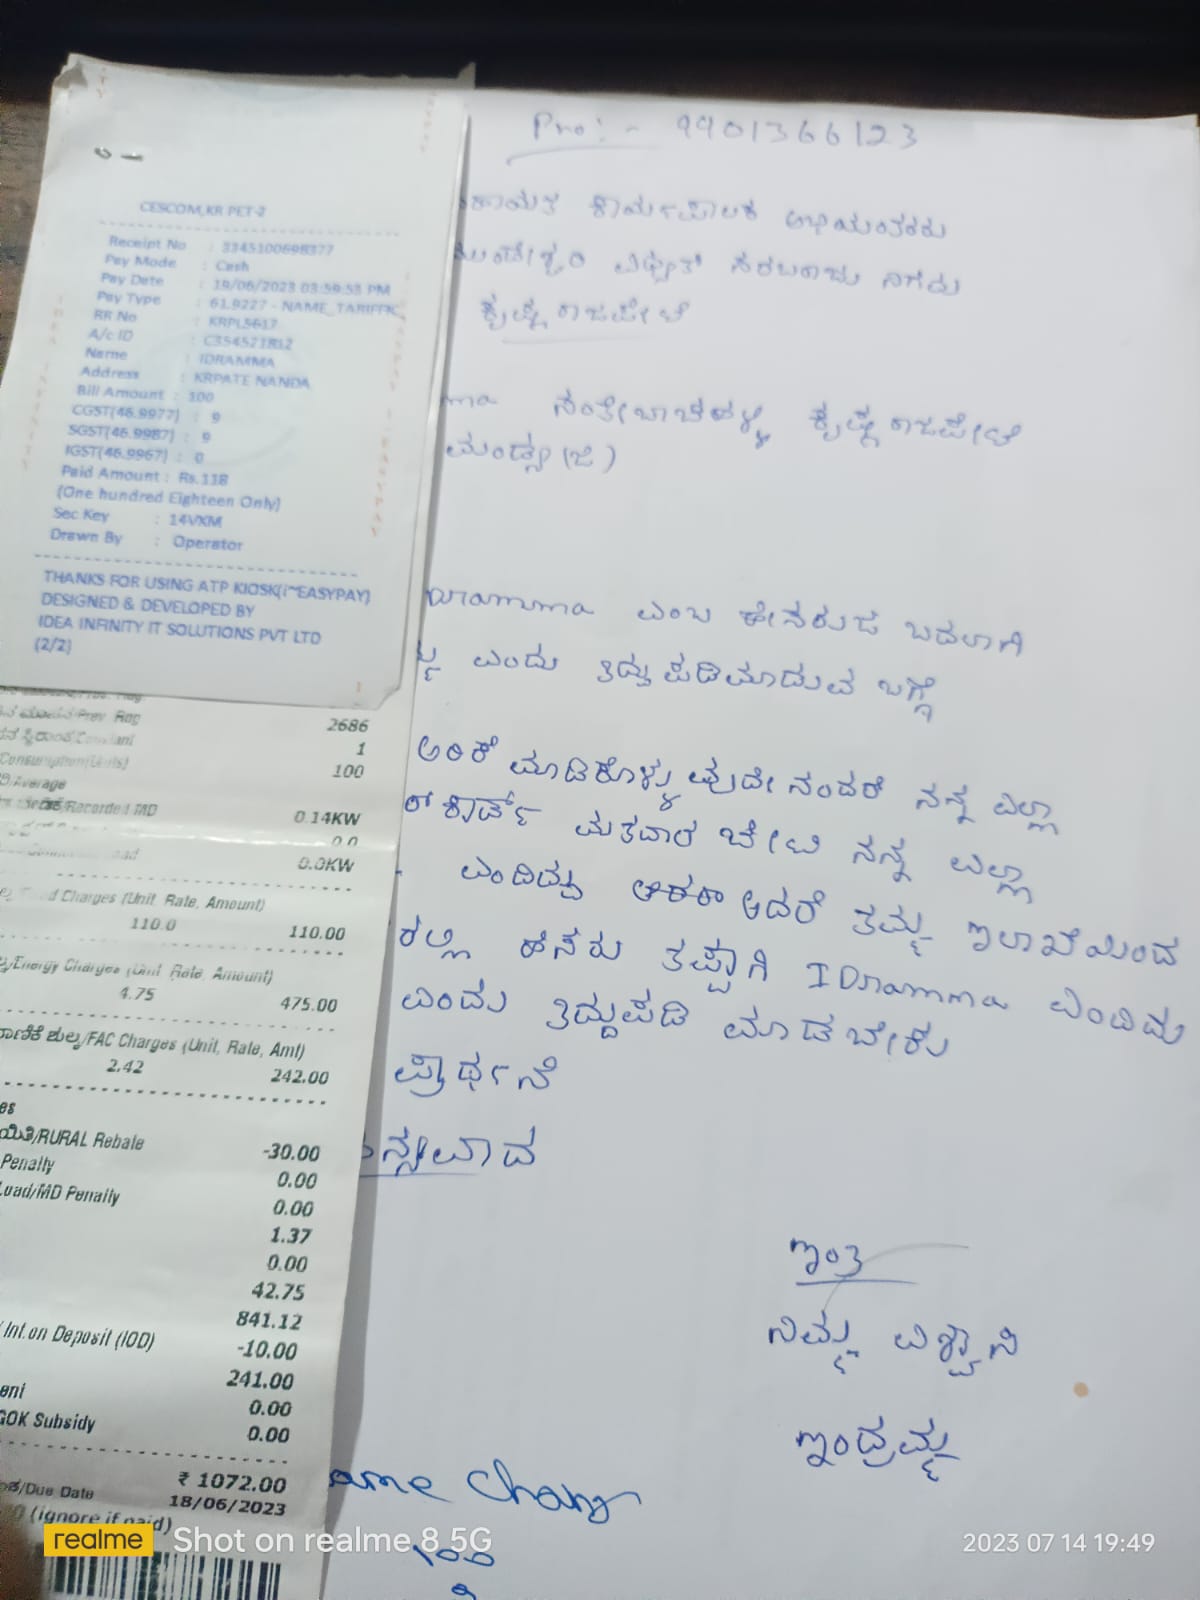 Pho:- 9901366123
CESCOM,KR PET-2
Receipt No : 3345100698377
Pay Mode : Cash
Pay Date : 19/06/2023 03:59:53 PM
Pay Type : 61.9227 - NAME_TARIFFK
RR No : KRPL5617
A/c ID : C354521812
Name : IDRAMMA
Address : KRPATE NANDA
Bill Amount : 100
CGST(46.9977) : 9
SGST(46.9987) : 9
IGST(46.9967) : 0
Paid Amount : Rs.118
(One hundred Eighteen Only)
Sec Key : 14VXM
Drawn By : Operator
THANKS FOR USING ATP KIOSK(i~EASYPAY)
DESIGNED & DEVELOPED BY
IDEA INFINITY IT SOLUTIONS PVT LTD
(2/2)
ಕಾರ್ಯಪಾಲಕ
ವಿಧ್ಯುತ್ ಸರಬರಾಜು ನಿಗಮ
ಕೃಷ್ಣರಾಜಪೇಟೆ
ಸಂತೇಬಾಚಹಳ್ಳಿ ಕೃಷ್ಣರಾಜಪೇಟೆ
ಮಂಡ್ಯ (ಜಿ)
ramma ಎಂಬ ಹೆಸರುಡ ಬದಲಾಗಿ
ಎಂದು ತಿದ್ದುಪಡಿಮಾಡುವ ಬಗ್ಗೆ
ಅರಿಕೆ ಮಾಡಿಕೊಳ್ಳುವುದೇನಂದರೆ ನನ್ನ ಎಲ್ಲಾ
ಕಾರ್ಡ್ ಮತದಾರ ಚೀಟಿ ನನ್ನ ಎಲ್ಲಾ
ಆದರೆ ತಮ್ಮ ಇಲಾಖೆಯಿಂದ
ಹೆಸರು ತಪ್ಪಾಗಿ IDramma ಎಂದಿದು
ಎಂದು ತಿದ್ದುಪಡಿ ಮಾಡಬೇಕು
ಪ್ರಾರ್ಥನೆ
ಇಂತಿ
ನಿಮ್ಮ ವಿಶ್ವಾಸಿ
ಇಂದ್ರಮ್ಮ
ame Chang
೧೦೦
Prev. Rdg 2686
1
Consumption(Units) 100
Average
/Recorded MD 0.14KW
0.0
0.0KW
Charges (Unit, Rate, Amount)
110.0 110.00
/Energy Charges (Unit Rate, Amount)
4.75 475.00
/FAC Charges (Unit, Rate, Amt)
2.42 242.00
es
/RURAL Rebate -30.00
Penalty 0.00
Load/MD Penalty 0.00
1.37
0.00
42.75
841.12
Int.on Deposit (IOD) -10.00
241.00
0.00
GOK Subsidy 0.00
₹ 1072.00
/Due Date 18/06/2023
(ignore if paid)
realme Shot on realme 8 5G
2023 07 14 19:49